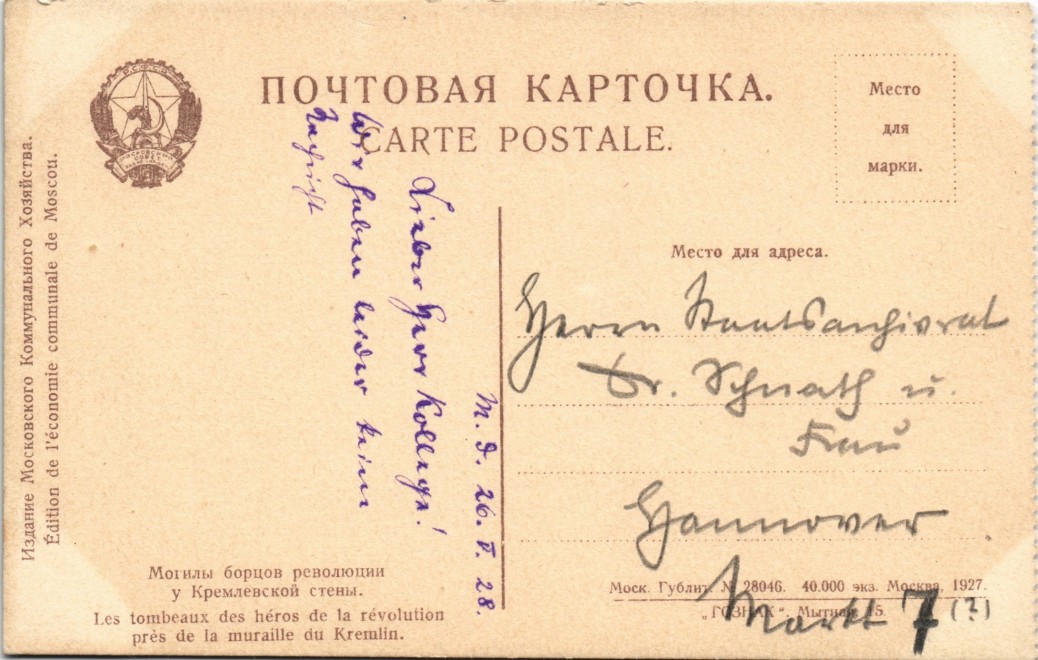 Р.С.Ф.С.Р.
ПОЧТОВАЯ КАРТОЧКА.
CARTE POSTALE.
Место
для
марки.
Место для адреса.
Издание Московского Коммунального Хозяйства.
Édition de l'économie communale de Moscou.
M. d. 26. V. 28.
Lieber Herr Kollege!
Wir haben leider keine
Herrn Staatsarchivrat
Dr. Schnath u.
Frau
Hannover
Markt 7 (?)
Могилы борцов революции
у Кремлевской стены.
Les tombeaux des héros de la révolution
près de la muraille du Kremlin.
Моск. Гублит. № 28046. 40.000 экз. Москва, 1927.
„ГОЗНАК“. Мытная 15.